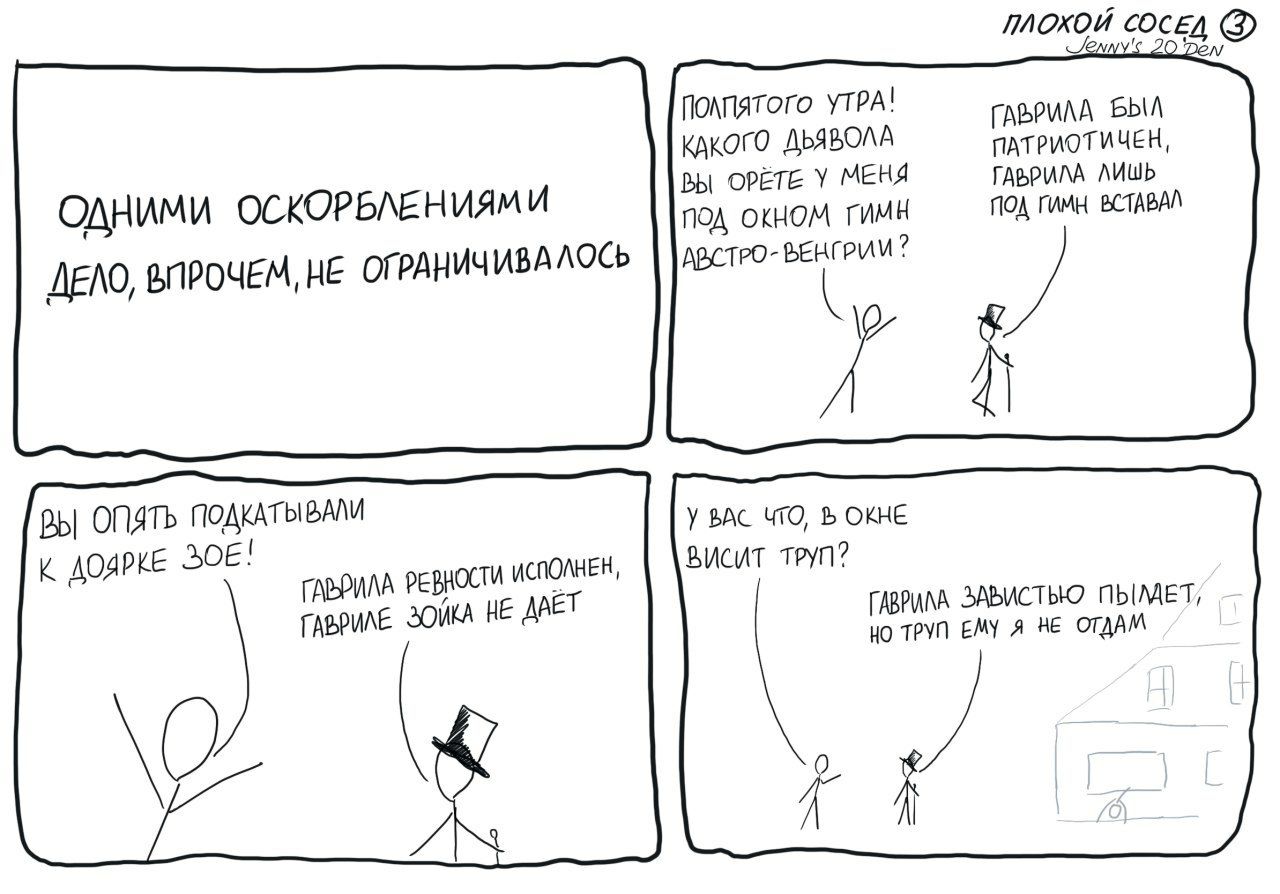 ПЛОХОЙ СОСЕД 3
Jenny's 20'Den
ОДНИМИ ОСКОРБЛЕНИЯМИ
ДЕЛО, ВПРОЧЕМ, НЕ ОГРАНИЧИВАЛОСЬ
ПОЛПЯТОГО УТРА!
КАКОГО ДЬЯВОЛА
ВЫ ОРЁТЕ У МЕНЯ
ПОД ОКНОМ ГИМН
АВСТРО-ВЕНГРИИ?
ГАВРИЛА БЫЛ
ПАТРИОТИЧЕН,
ГАВРИЛА ЛИШЬ
ПОД ГИМН ВСТАВАЛ
ВЫ ОПЯТЬ ПОДКАТЫВАЛИ
К ДОЯРКЕ ЗОЕ!
ГАВРИЛА РЕВНОСТИ ИСПОЛНЕН,
ГАВРИЛЕ ЗОЙКА НЕ ДАЁТ
У ВАС ЧТО, В ОКНЕ
ВИСИТ ТРУП?
ГАВРИЛА ЗАВИСТЬЮ ПЫЛАЕТ,
НО ТРУП ЕМУ Я НЕ ОТДАМ